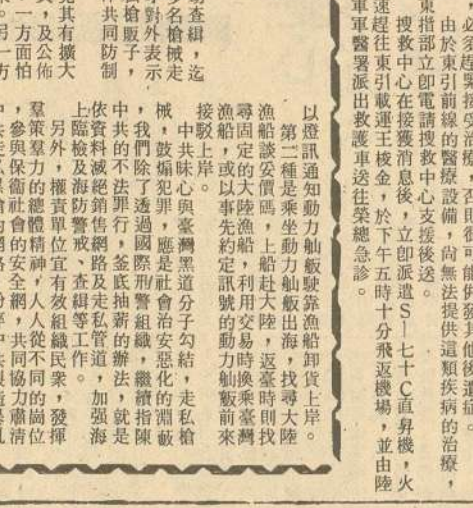 必須趕緊接受治療，否則很可能併發其他後遺症。
由於東引前線的醫療設備，尚無法提供這類疾病的治療，
東指部立即電請搜救中心支援後送。
搜救中心在接獲消息後，立即派遣S—七十C直昇機，火
速趕往東引載運王梭金，於下午五時十分飛返機場，並由陸
軍軍醫署派出救護車送往榮總急診。
查緝，迄
多名槍械走
對外表示
槍販子，
共同防制
其有擴大
，及公佈
一方面怕
。另一方
以燈訊通知動力舢舨駛靠漁船卸貨上岸。
第二種是乘坐動力舢舨出海，找尋大陸
漁船談妥價碼，上船赴大陸，返臺時則找
尋固定的大陸漁船，利用交易時換乘臺灣
漁船，或以事先約定訊號的動力舢舨前來
接駁上岸。
中共昧心與臺灣黑道分子勾結，走私槍
械，鼓煽犯罪，應是社會治安惡化的淵藪
，我們除了透過國際刑警組織，繼續指陳
中共的不法罪行，釜底抽薪的辦法，就是
依資料滅絕銷售網路及走私管道，加强海
上臨檢及海防警戒、查緝等工作。
另外，權責單位宜有效組織民衆，發揮
羣策羣力的總體精神，人人從不同的崗位
，參與保衞社會的安全網，共同協力肅清